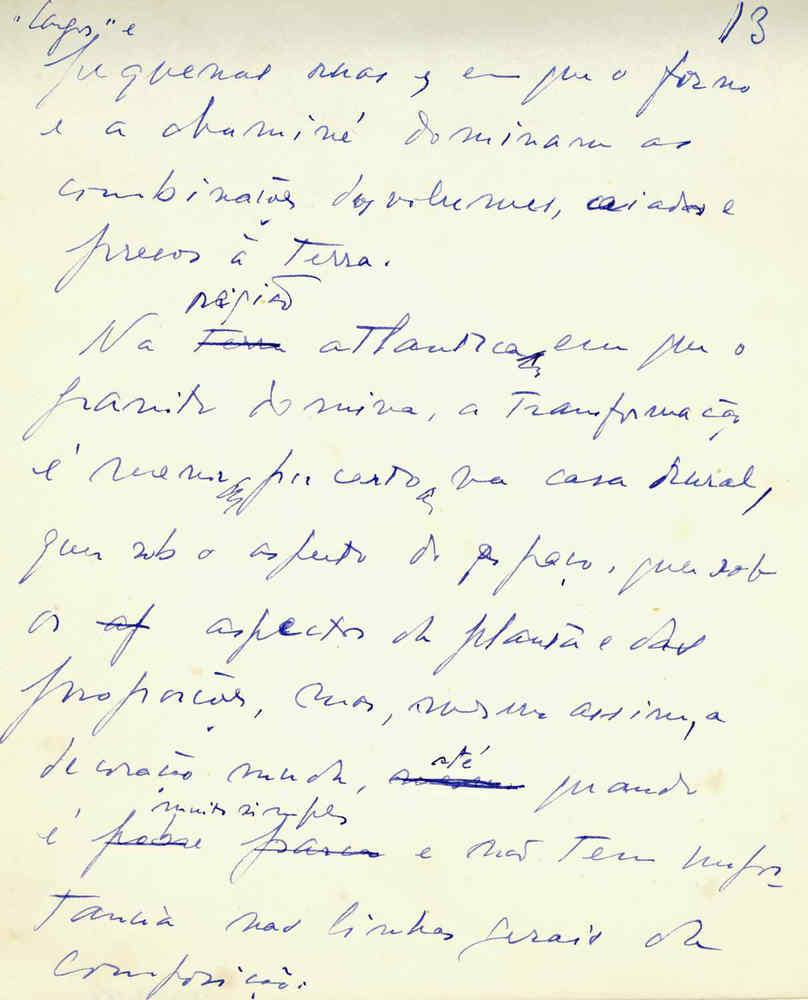 13
"largos" e
pequenas ruas, em que o forno
e a chaminé dominam as
combinações dos volumes, caiados e
presos à terra.
região
Na terra atlantica, em que o
granito domina, a transformação
é menor, por certo, na casa rural,
quer sob o aspecto do espaço, quer sob
os aspectos da planta e das
proporções, mas, mesmo assim, a
até
decoração muda, mesmo quando
muito simples
é pobre e não tem impor-
tancia nas linhas gerais da
composição.